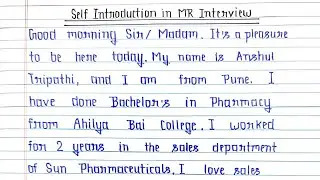 Self Introduction in MR Interview
Good morning Sir/ Madam. It's a pleasure
to be here today. My name is Anshul
Tripathi, and I am from Pune. I
have done Bachelor's in Pharmacy
from Ahilya Bai College. I worked
for 2 years in the sales department
of Sun Pharmaceuticals. I love sales